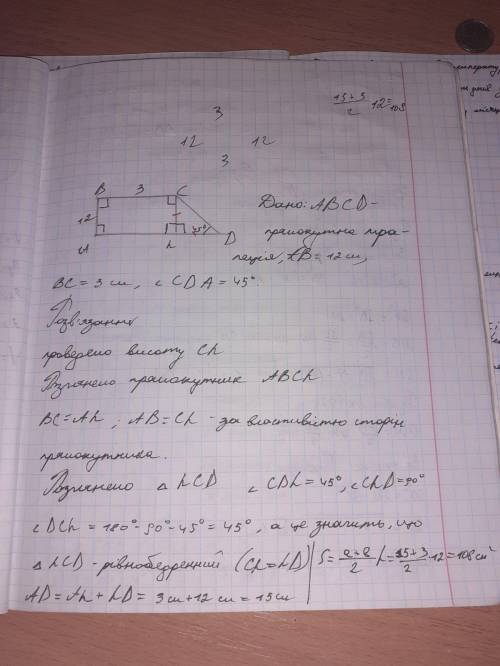 3
15+3/2 · 12 = 108
12 12
3
B 3 C
12
A h 45° D
Дано: ABCD -
прямокутна тра-
пеція, AB = 12 см,
BC = 3 см, ∠CDA = 45°.
Розв'язання
проведемо висоту Ch
Розглянемо прямокутник ABCh
BC = Ah ; AB = Ch - за властивістю сторін
прямокутника.
Розглянемо △ hCD ∠CDh = 45°, ∠ChD = 90°
∠DCh = 180° - 90° - 45° = 45°, а це значить, що
△ hCD - рівнобедренний (Ch = hD)
S = a+b/2 h = 15+3/2 · 12 = 108 см²
AD = Ah + hD = 3 см + 12 см = 15 см